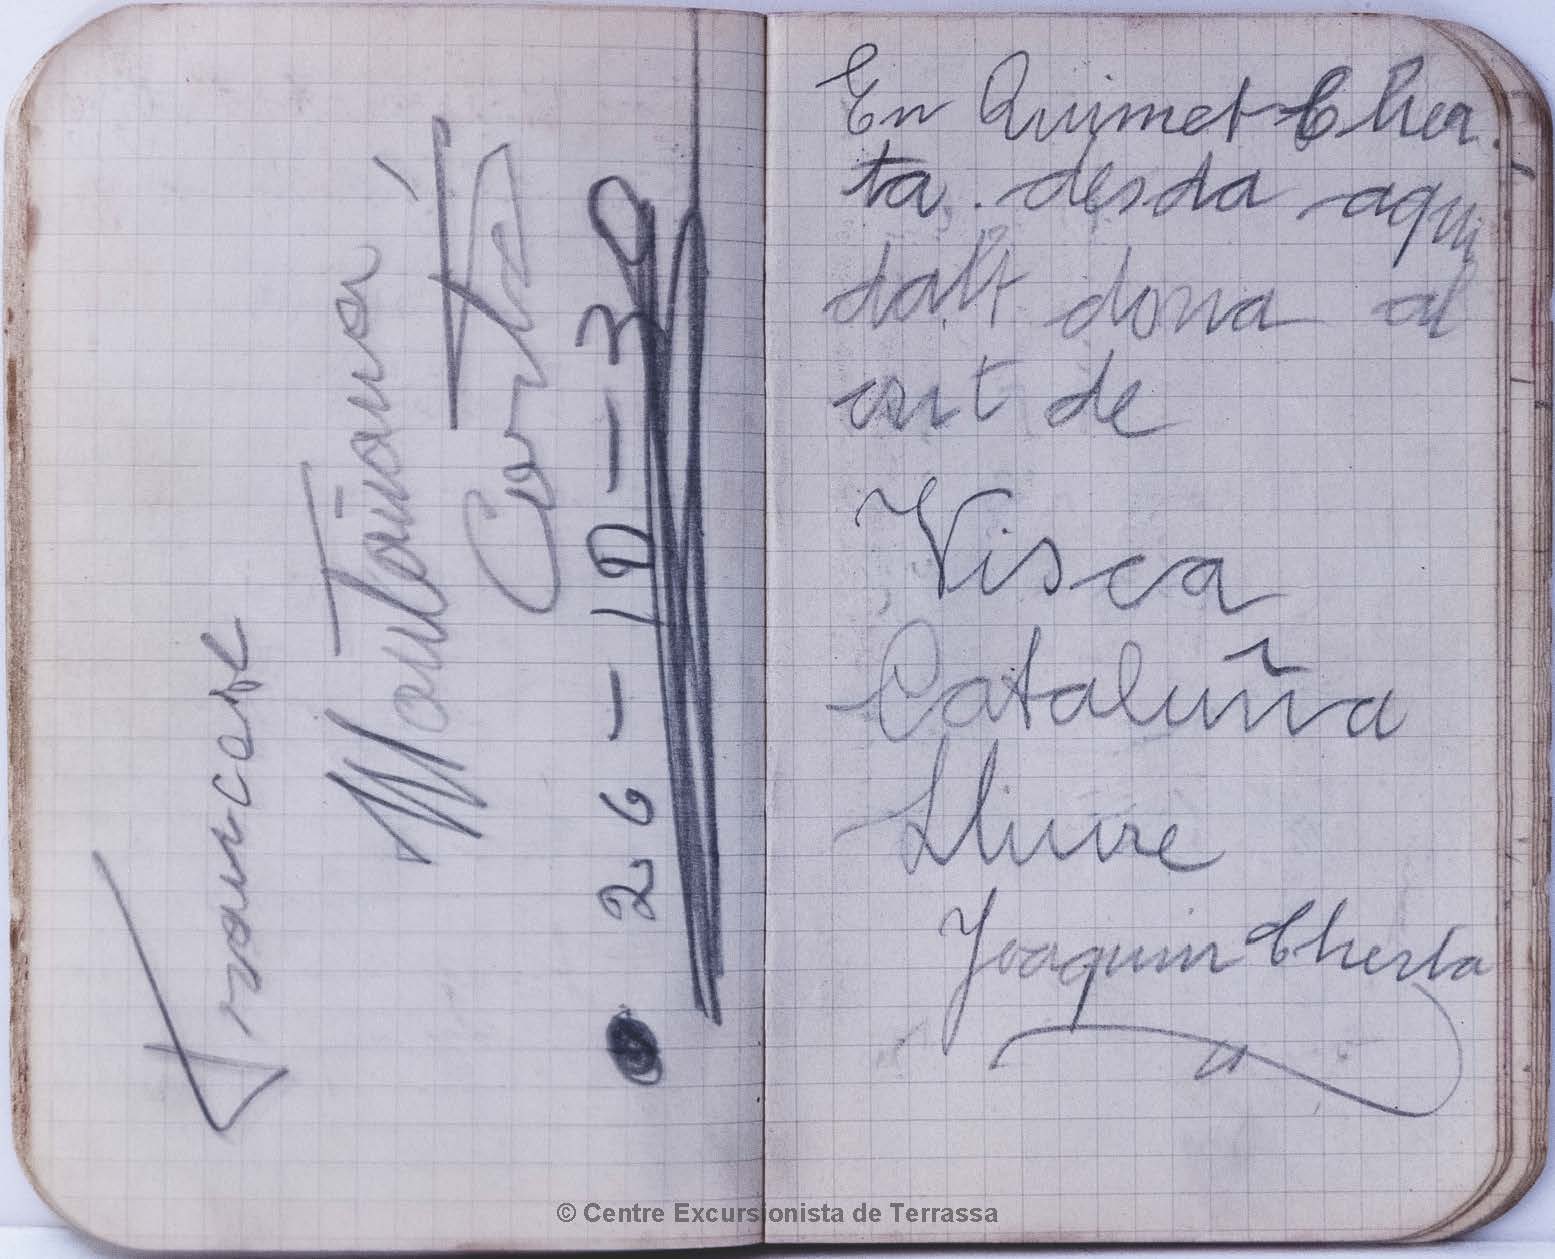 Francesc
Montañá
Cortés
26-10-30
En Quimet Cher
ta desda aqui
dalt dona el
crit de
Visca
Cataluña
Lliure
Joaquin Cherta
© Centre Excursionista de Terrassa